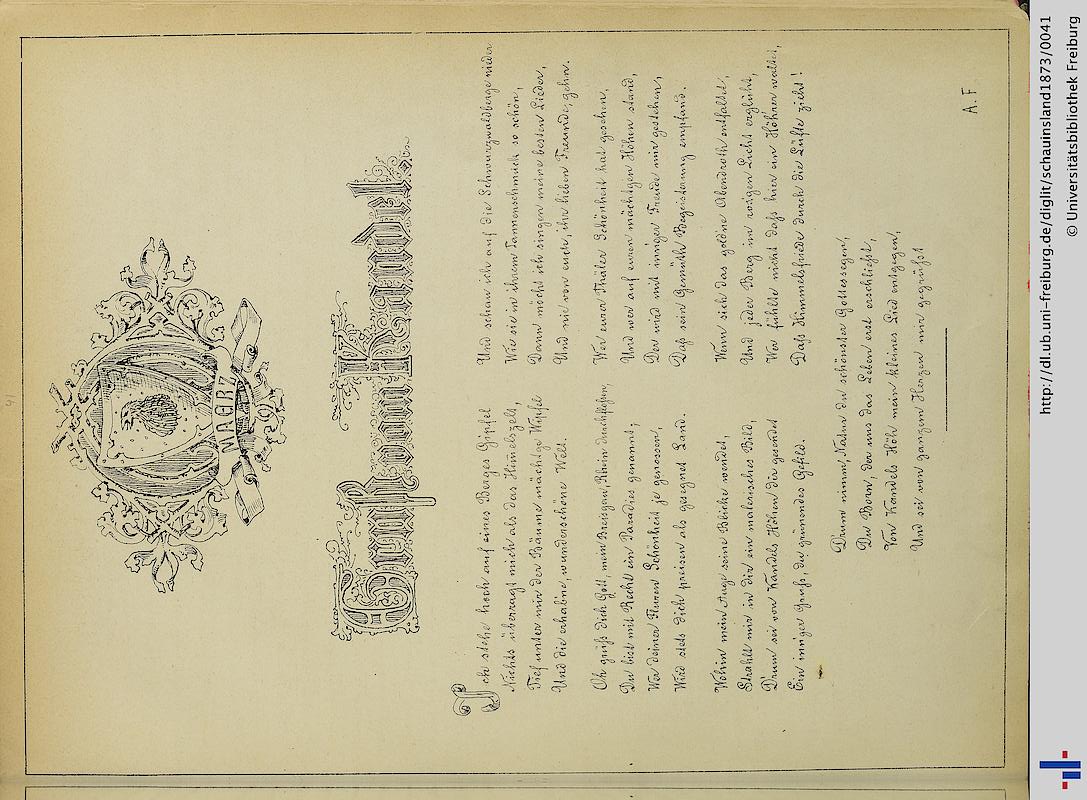 MAERZ
Gruß vom Kandel
Ich stehe hoch auf eines Berges Gipfel
Nichts überragt mich als das Himmelszelt,
Tief unter mir der Bäume mächt'ge Wipfel
Und die erhab'ne, wunderschöne Welt.
Oh grüß dich Gott, mein Breisgau, Rhein durchflossen,
Du bist mit Recht ein Paradies genannt,
Wer deiner Fluren Schönheit je genossen,
Wird stets dich preisen als gesegnet Land.
Wohin mein Auge seine Blicke wendet,
Strahlt mir in dir ein malerisches Bild,
D'rum sei von Kandels Höhen dir gesendet
Ein inn'ger Gruß, du grünendes Gefild.
Und schau ich auf die Schwarzwaldberge nieder
Wie sie in ihrem Tannenschmuck so schön,
Dann möcht ich singen meine besten Lieder,
Und nie von euch, ihr lieben Freunde, gehn.
Wer eurer Thäler Schönheit hat gesehen,
Und wer auf euren mächt'gen Höhen stand,
Der wird mit inniger Freude mir gestehen,
Daß sein Gemüth Begeisterung empfand.
Wenn sich das gold'ne Abendroth entfaltet,
Und jeder Berg im ros'gen Licht erglüht,
Wer fühlte nicht daß hier ein Höh'rer waltet,
Daß Himmelsfriede durch die Lüfte zieht!
Drum nimm, Natur du schönster Gottessegen,
Du Born, der uns das Leben erst erschließt,
Von Kandels Höh' mein kleines Lied entgegen,
Und sei von ganzem Herzen mir gegrüßt
A. F
41
http://dl.ub.uni-freiburg.de/diglit/schauinsland1873/0041
© Universitätsbibliothek Freiburg